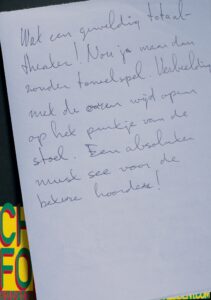 Wat een geweldig totaal-
theater! Nou ja maar dan
zonder toneelspel. Verbeelding
met de oren wijd open
op het puntje van de
stoel. Een absolute
must see voor de
betere hoorders!
CH
FO